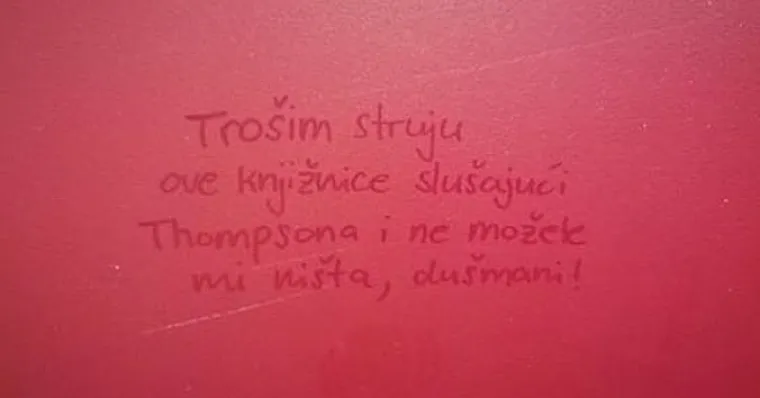 Trošim struju
ove knjižnice slušajući
Thompsona i ne možete
mi ništa, dušmani!